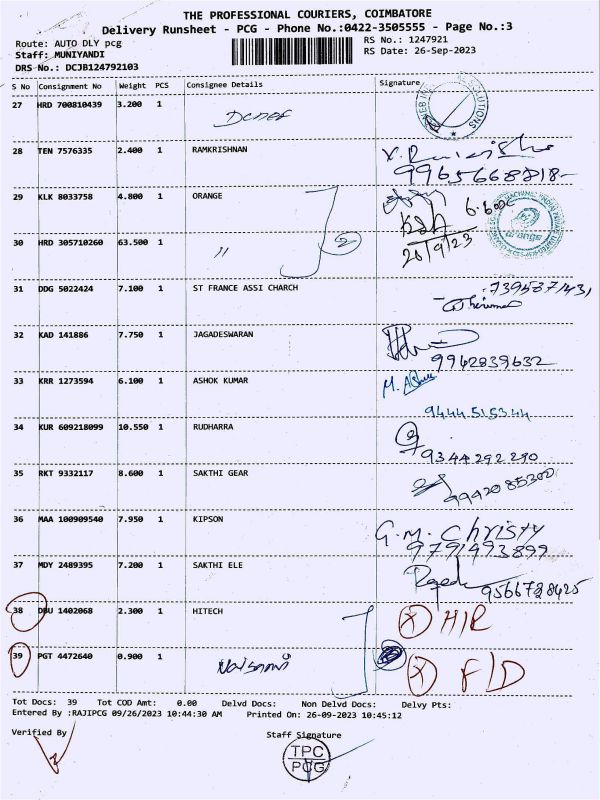 THE PROFESSIONAL COURIERS, COIMBATORE
Delivery Runsheet - PCG - Phone No.:0422-3505555 - Page No.:3
Route: AUTO DLY pcg RS No.: 1247921
Staff: MUNIYANDI RS Date: 26-Sep-2023
DRS No.: DCJB124792103
S No Consignment No Weight PCS Consignee Details Signature
27 HRD 700810439 3.200 1
28 TEN 7576335 2.400 1 RAMKRISHNAN
9965668818
29 KLK 8033758 4.800 1 ORANGE
30 HRD 305710260 63.500 1 " 2
26/9/23
31 DDG 5022424 7.100 1 ST FRANCE ASSI CHARCH
32 KAD 141886 7.750 1 JAGADESWARAN
9942839632
33 KRR 1273594 6.100 1 ASHOK KUMAR
9444515344
34 KUR 609218099 10.550 1 RUDHARRA
9344292290
35 RKT 9332117 8.600 1 SAKTHI GEAR
9942085300
36 MAA 100909540 7.950 1 KIPSON G.M. Christy
9791493899
37 MDY 2489395 7.200 1 SAKTHI ELE
9566728425
38 DBU 1402068 2.300 1 HITECH X H/R
39 PGT 4472640 0.900 1 X F/D
Tot Docs: 39 Tot COD Amt: 0.00 Delvd Docs: Non Delvd Docs: Delvy Pts:
Entered By :RAJIPCG 09/26/2023 10:44:30 AM Printed On: 26-09-2023 10:45:12
Verified By Staff Signature
TPC
PCG